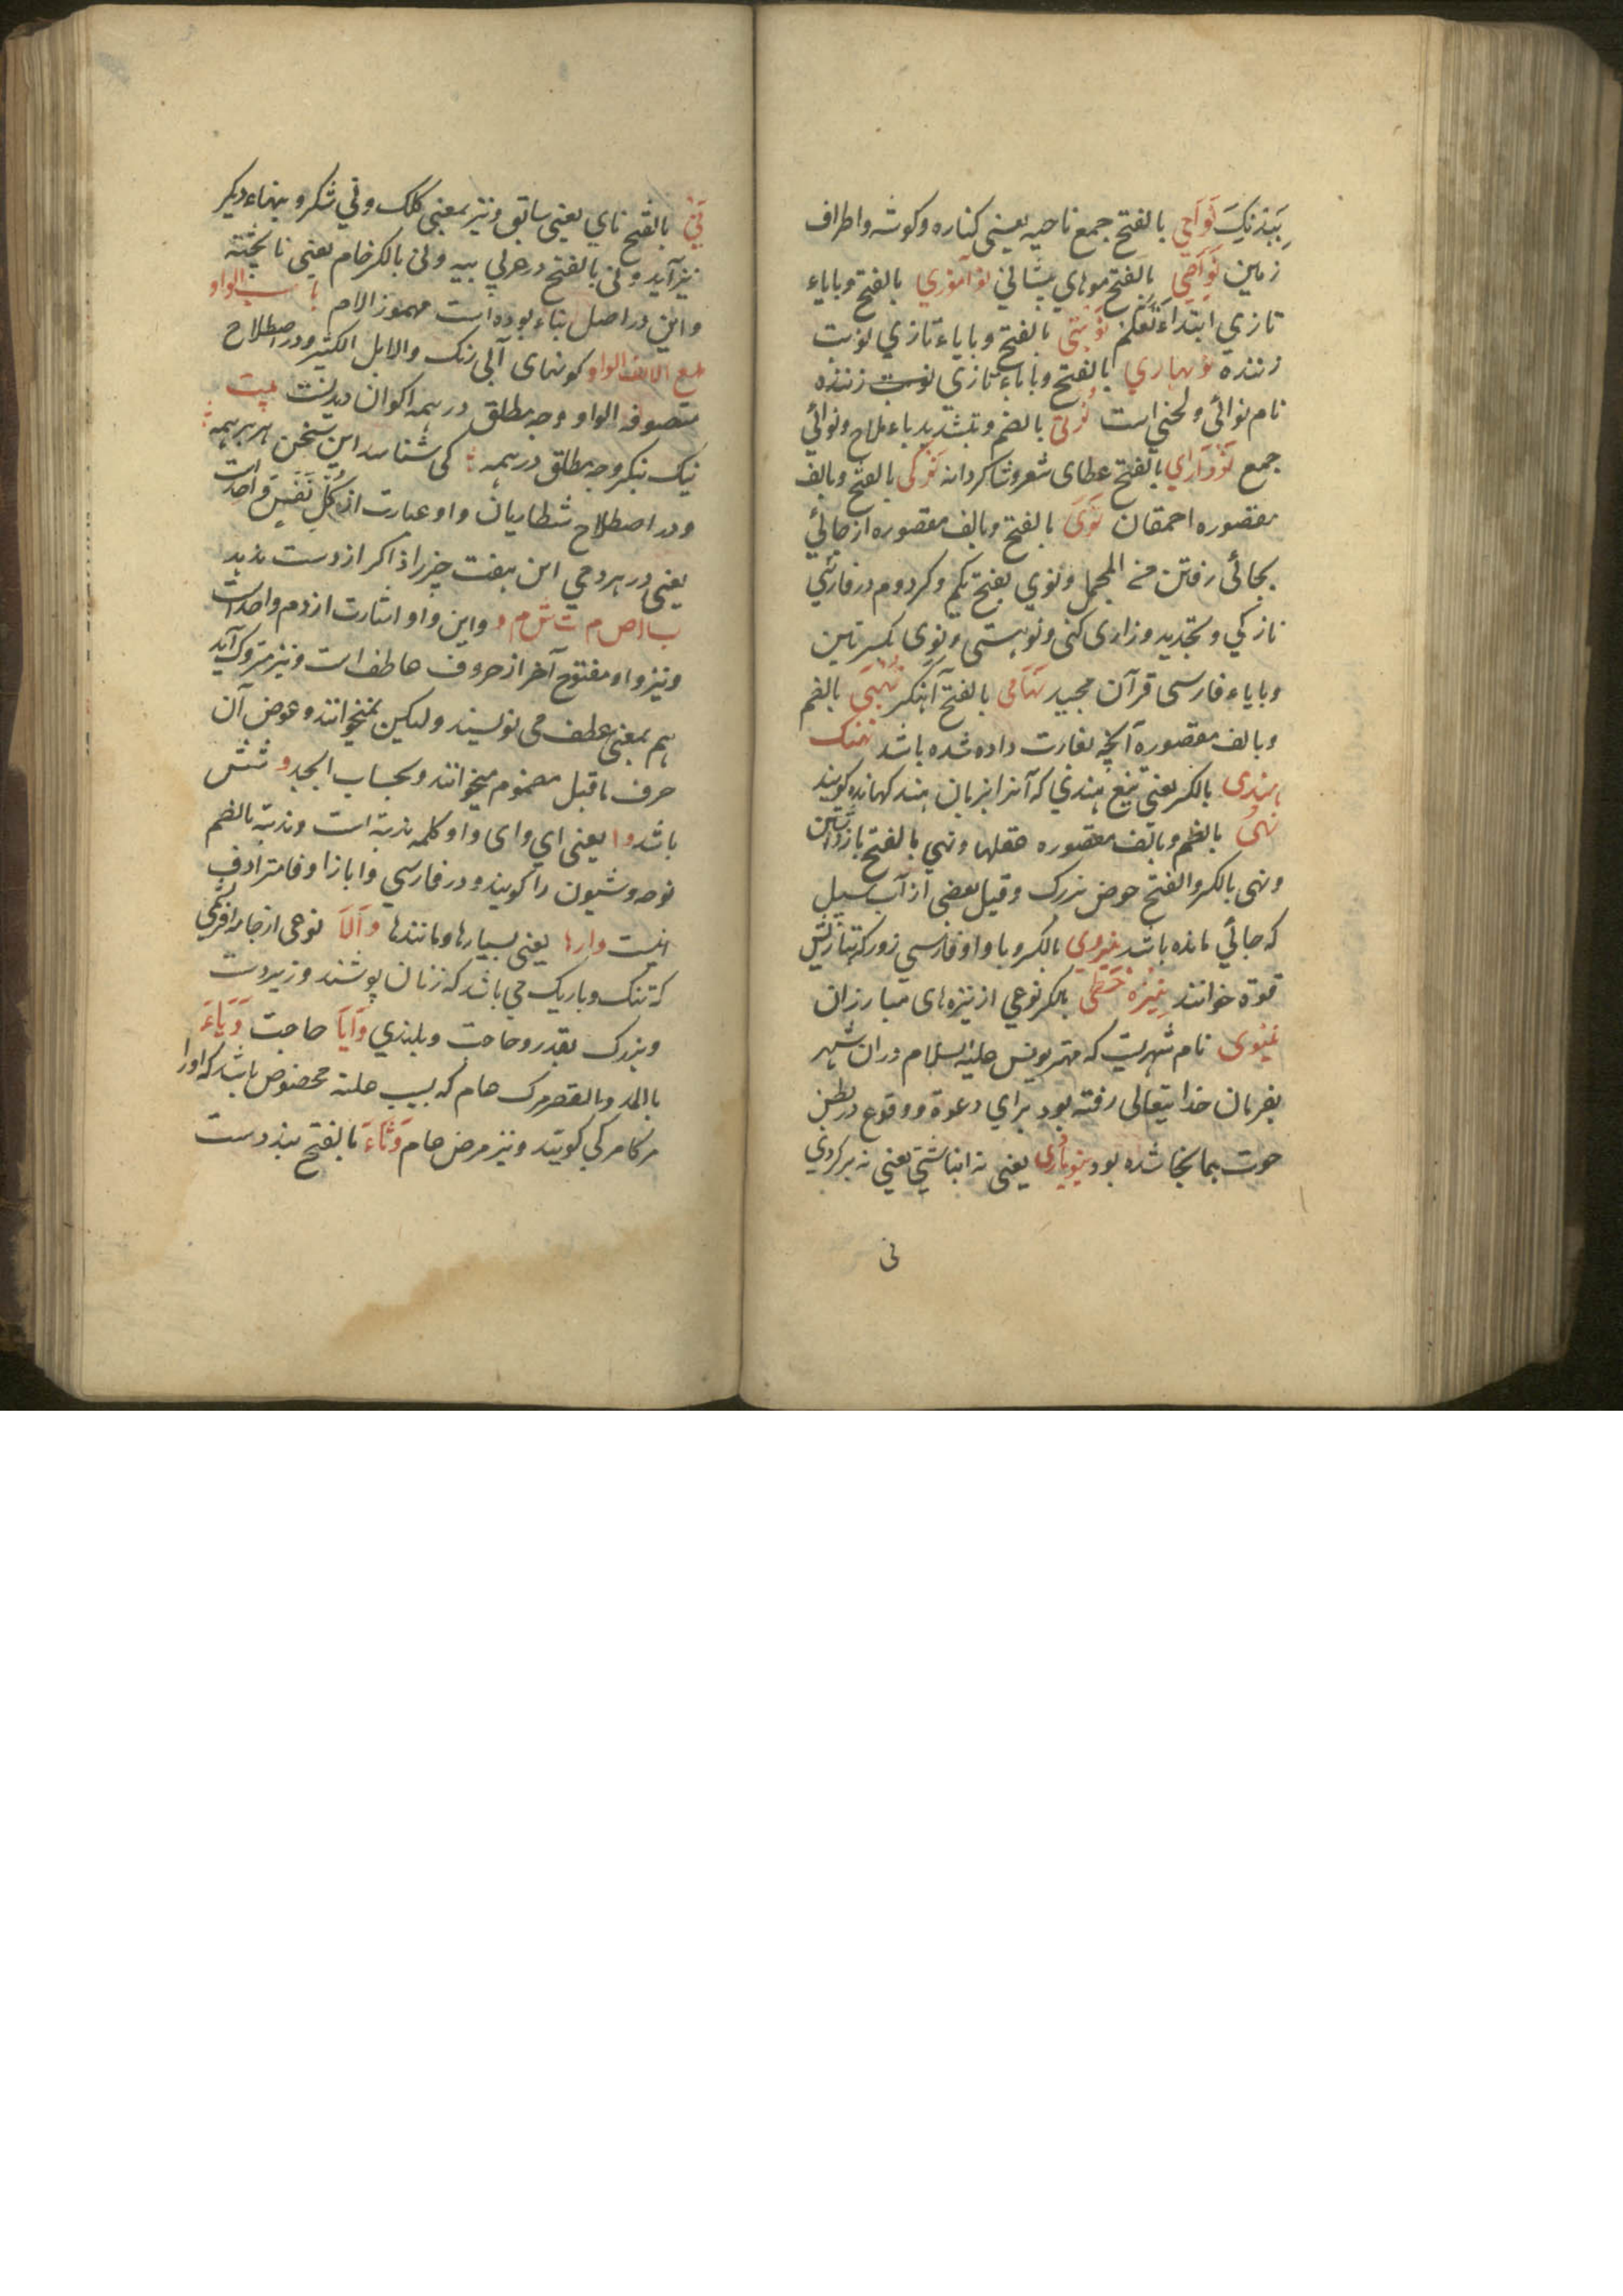 بالفتح جمع ناحیه یعنی کناره وکوشه واطراف
زمین نواصی بالفتح موهای پیشانی نوآموزی بالفتح وبایاء
تازی ابتداء تعلم نوبتی بالفتح وبایاء تازی نوبت
زننده نوبهاری بالفتح وباباء تازی نوبت زننده
نام نوائی ولحنی است بالضم وبتشدید یاء ملاح ونوائی
جمع بالفتح عطای شعر وشاکردانه نوکی بالفتح وبالف
مقصوره احمقان نوی بالفتح وبالف مقصوره از جائی
بجائی رفتن من المجمل ونوی بفتح یکم وکر دوم در فارسی
نازکی وتجدید وزاری کنی ونوهستی ونوی بکسرتین
وبایاء فارسی قرآن مجید نهامی بالفتح آهنکر نهبی بالضم
وبالف مقصوره آنچه بغارت داده شده باشد نهنک
هندی بالکسر یعنی تیغ هندی که آنرا بزبان هند کهانده کویند
نهی بالضم وبالف مقصوره عقلها ونهی بالفتح بازداشتن
ونهی بالکسر والفتح حوض بزرک وقیل بعضی از آب سیل
که جائی مانده باشد نیروی بالکسر وباواو فارسی زور که بتازیش
قوة خوانند نیزه خطی بالکسر نوعی از نیزه های مبارزان
نینوی نام شهریست که مهتر یونس علیه السلام دران شهر
بفرمان خدایتعالی رفته بود برای دعوة ووقوع در بطن
حوت بمانجا شده بود نیوباری یعنی نه انباشتی یعنی نه پر کردی
نی
نی بالفتح نای یعنی سابق ونیز بمعنی کلک ونی شکر وبنهاء دیکر
نیز آید ونی بالفتح در عربی پیه ونی بالکسر خام یعنی ناپخته
واین در اصل بناء بوده است مهموز اللام باب الواو
مع الالف الواو کوهنهای آبی رنک والابل الکثیر ودر اصطلاح
متصوفه الواو وجه مطلق در همه اکوان دیدنست بیت
نیک بنکر وجه مطلق در همه کی شناسد این سخن هر برهمه
ودر اصطلاح شطاریان واو عبارت از کل نفس واحدة است
یعنی در هر دمی این هفت چیز را ذاکر از دست ندهد
واین واو اشارت از دم واحد است
ونیز واو مفتوح آخر از حروف عاطف است ونیز متروک آید
هم بمعنی عطف می نویسند ولیکن نمیخوانند وعوض آن
حرف ماقبل مضموم میخوانند وبحساب ابجد و شش
باشد وا یعنی ای وای واو کلمه ندبه است وندبه بالضم
نوحه وشیون را کویند ودر فارسی وا بازا وفا مترادف
اینست وارها یعنی بسیارها ومانندها والا نوعی از جامه افرنکی
که تنک وباریک می باشد که زنان پوشند وزبردست
وبزرک بقدر وحاجت وبلندی وایا حاجت وباء
بالمد وبالقصر مرک عام که بسبب علته مخصوص باشد که اورا
مرکامرکی کویند ونیز مرض عام وثاء بالفتح بند دست